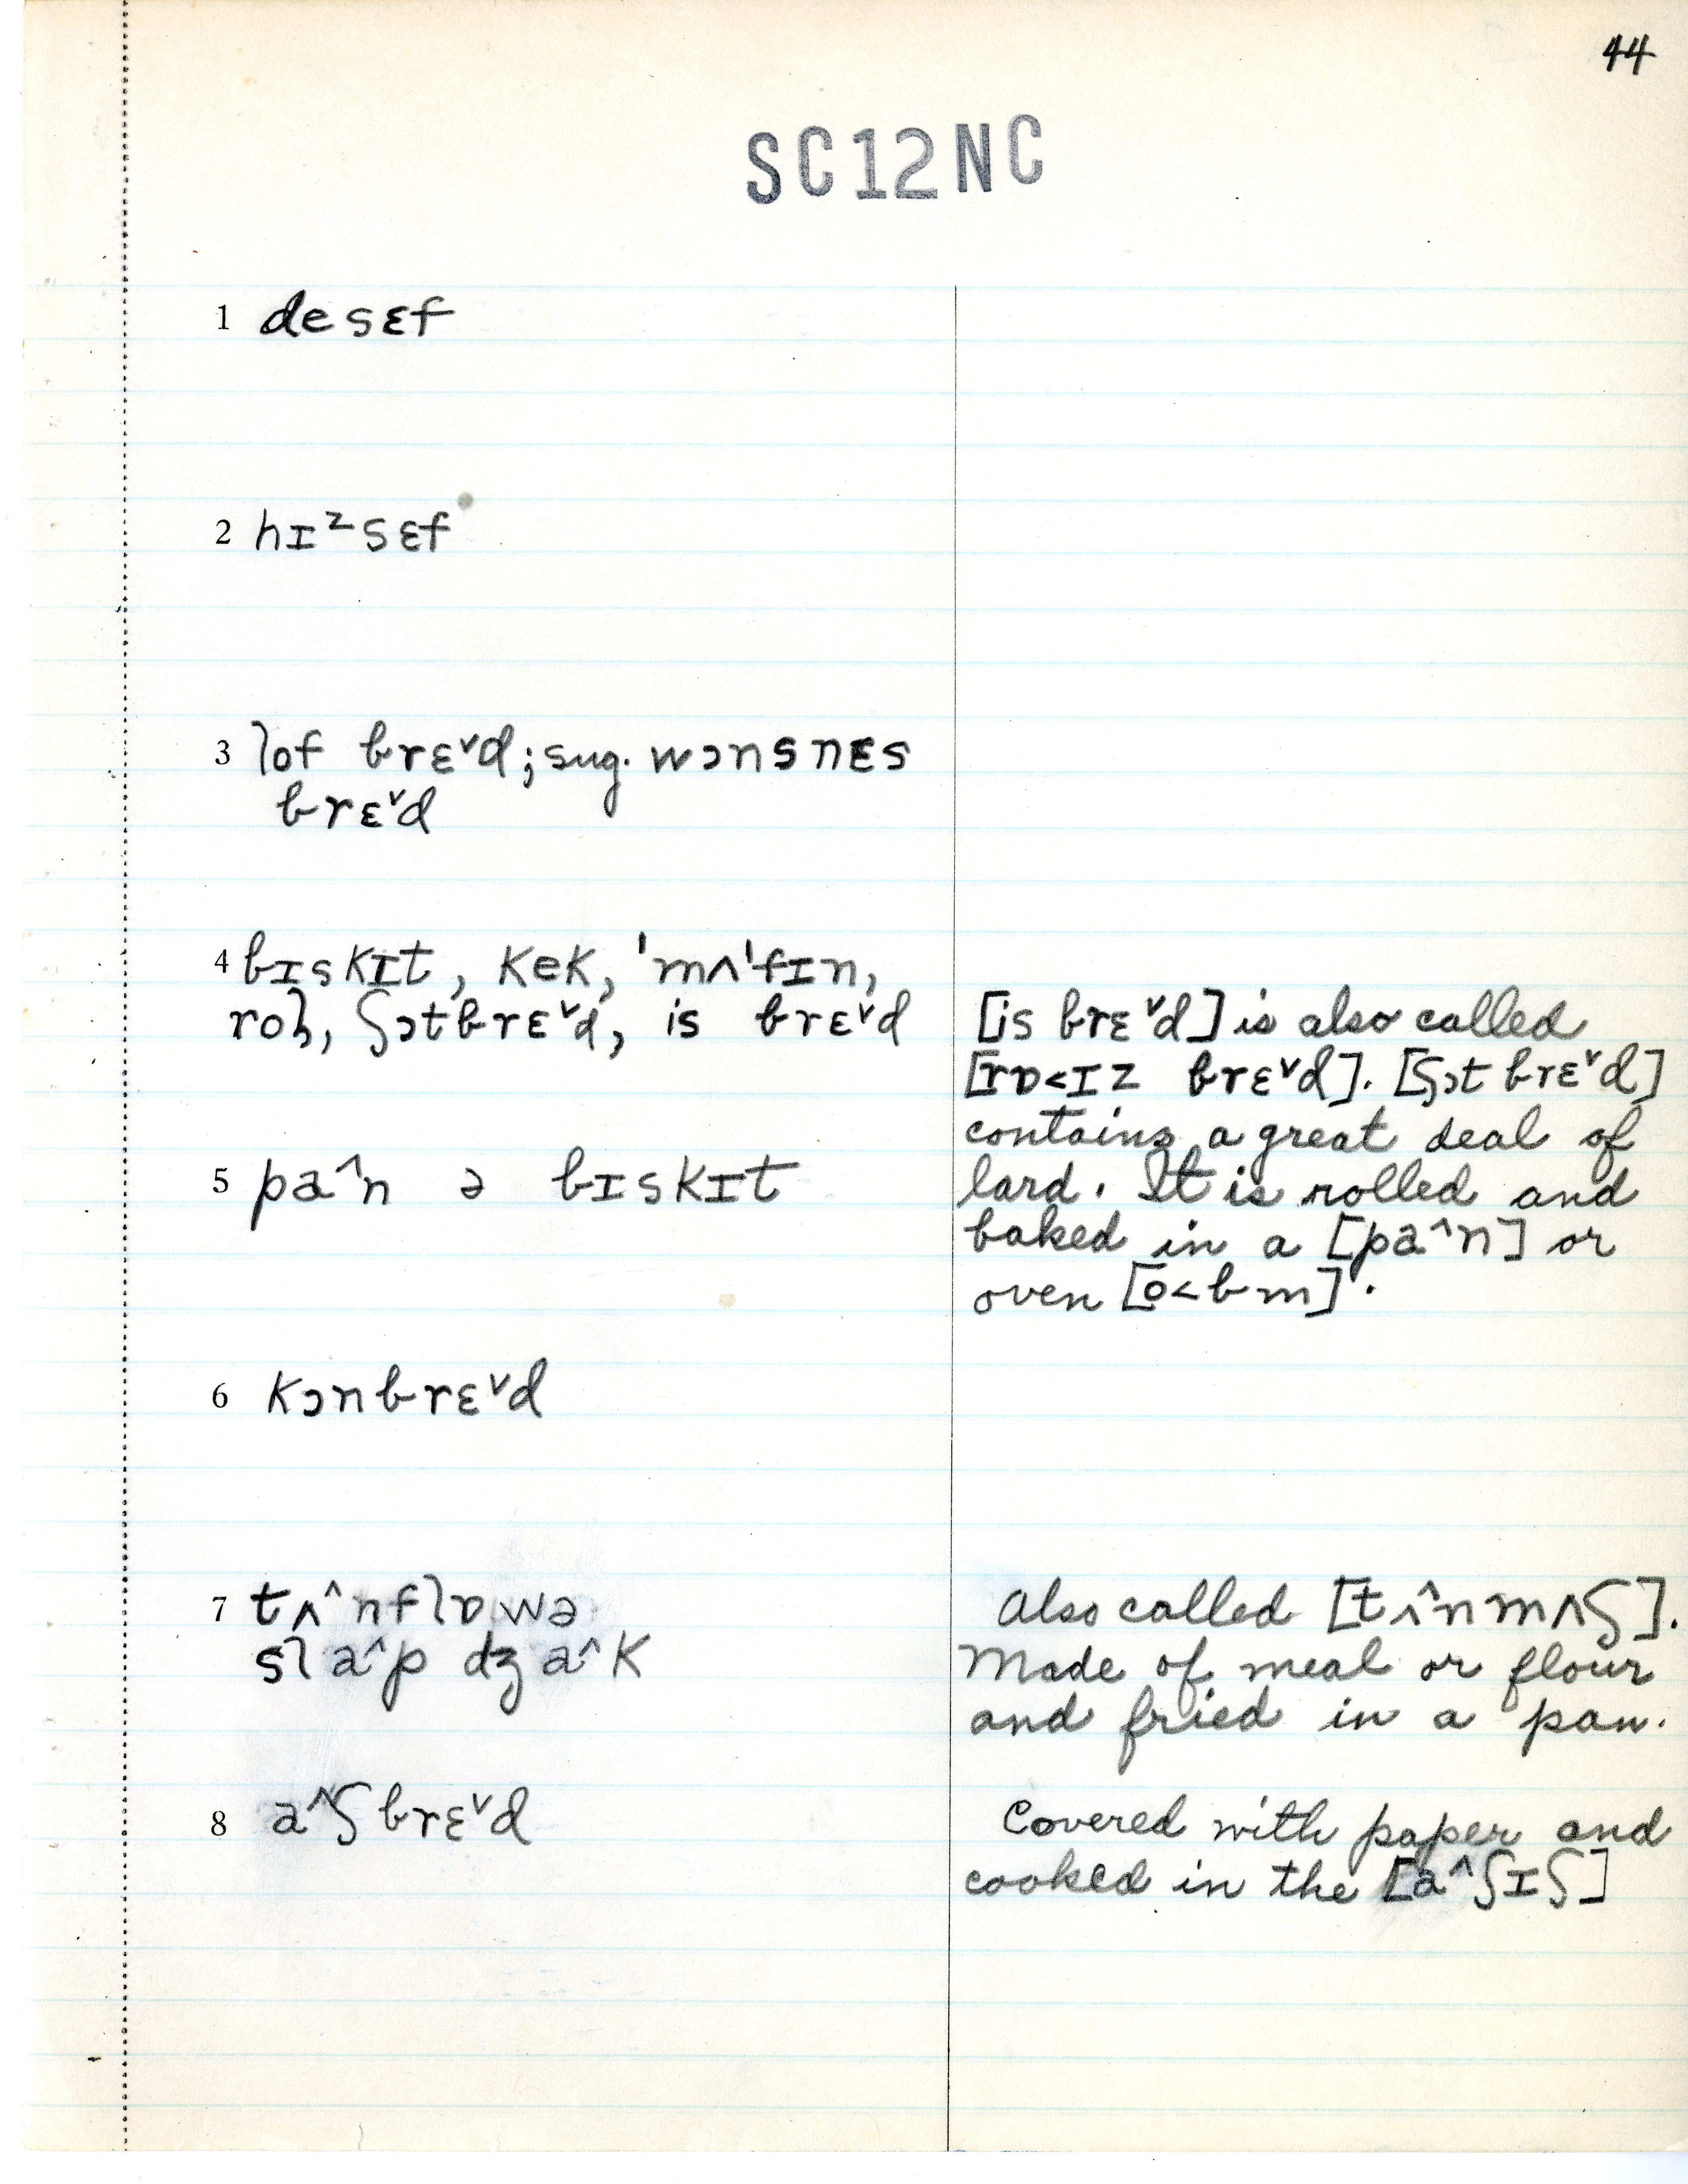 44
SC12NC
1 desɛf
2 hɪᶻsɛf
3 lof brɛ˅d; sug. wɔnsnɛs
brɛ˅d
4 bɪskɪt, kek, 'mʌ'fɪn,
ʃɔtbrɛ˅d, is brɛ˅d
5 pa˄n ə bɪskɪt
6 kɔnbrɛ˅d
7 tʌ˄nflɒwə
sla˄p dʒa˄k
8 a˄ʃbrɛ˅d
[is brɛ˅d] is also called
[rɒ<ɪz brɛ˅d]. [ʃɔt brɛ˅d]
contains a great deal of
lard. It is rolled and
baked in a [pa˄n] or
oven [o<bm].
Also called [tʌ˄nmʌʃ].
Made of meal or flour
and fried in a pan.
Covered with paper and
cooked in the [a˄ʃɪʃ]